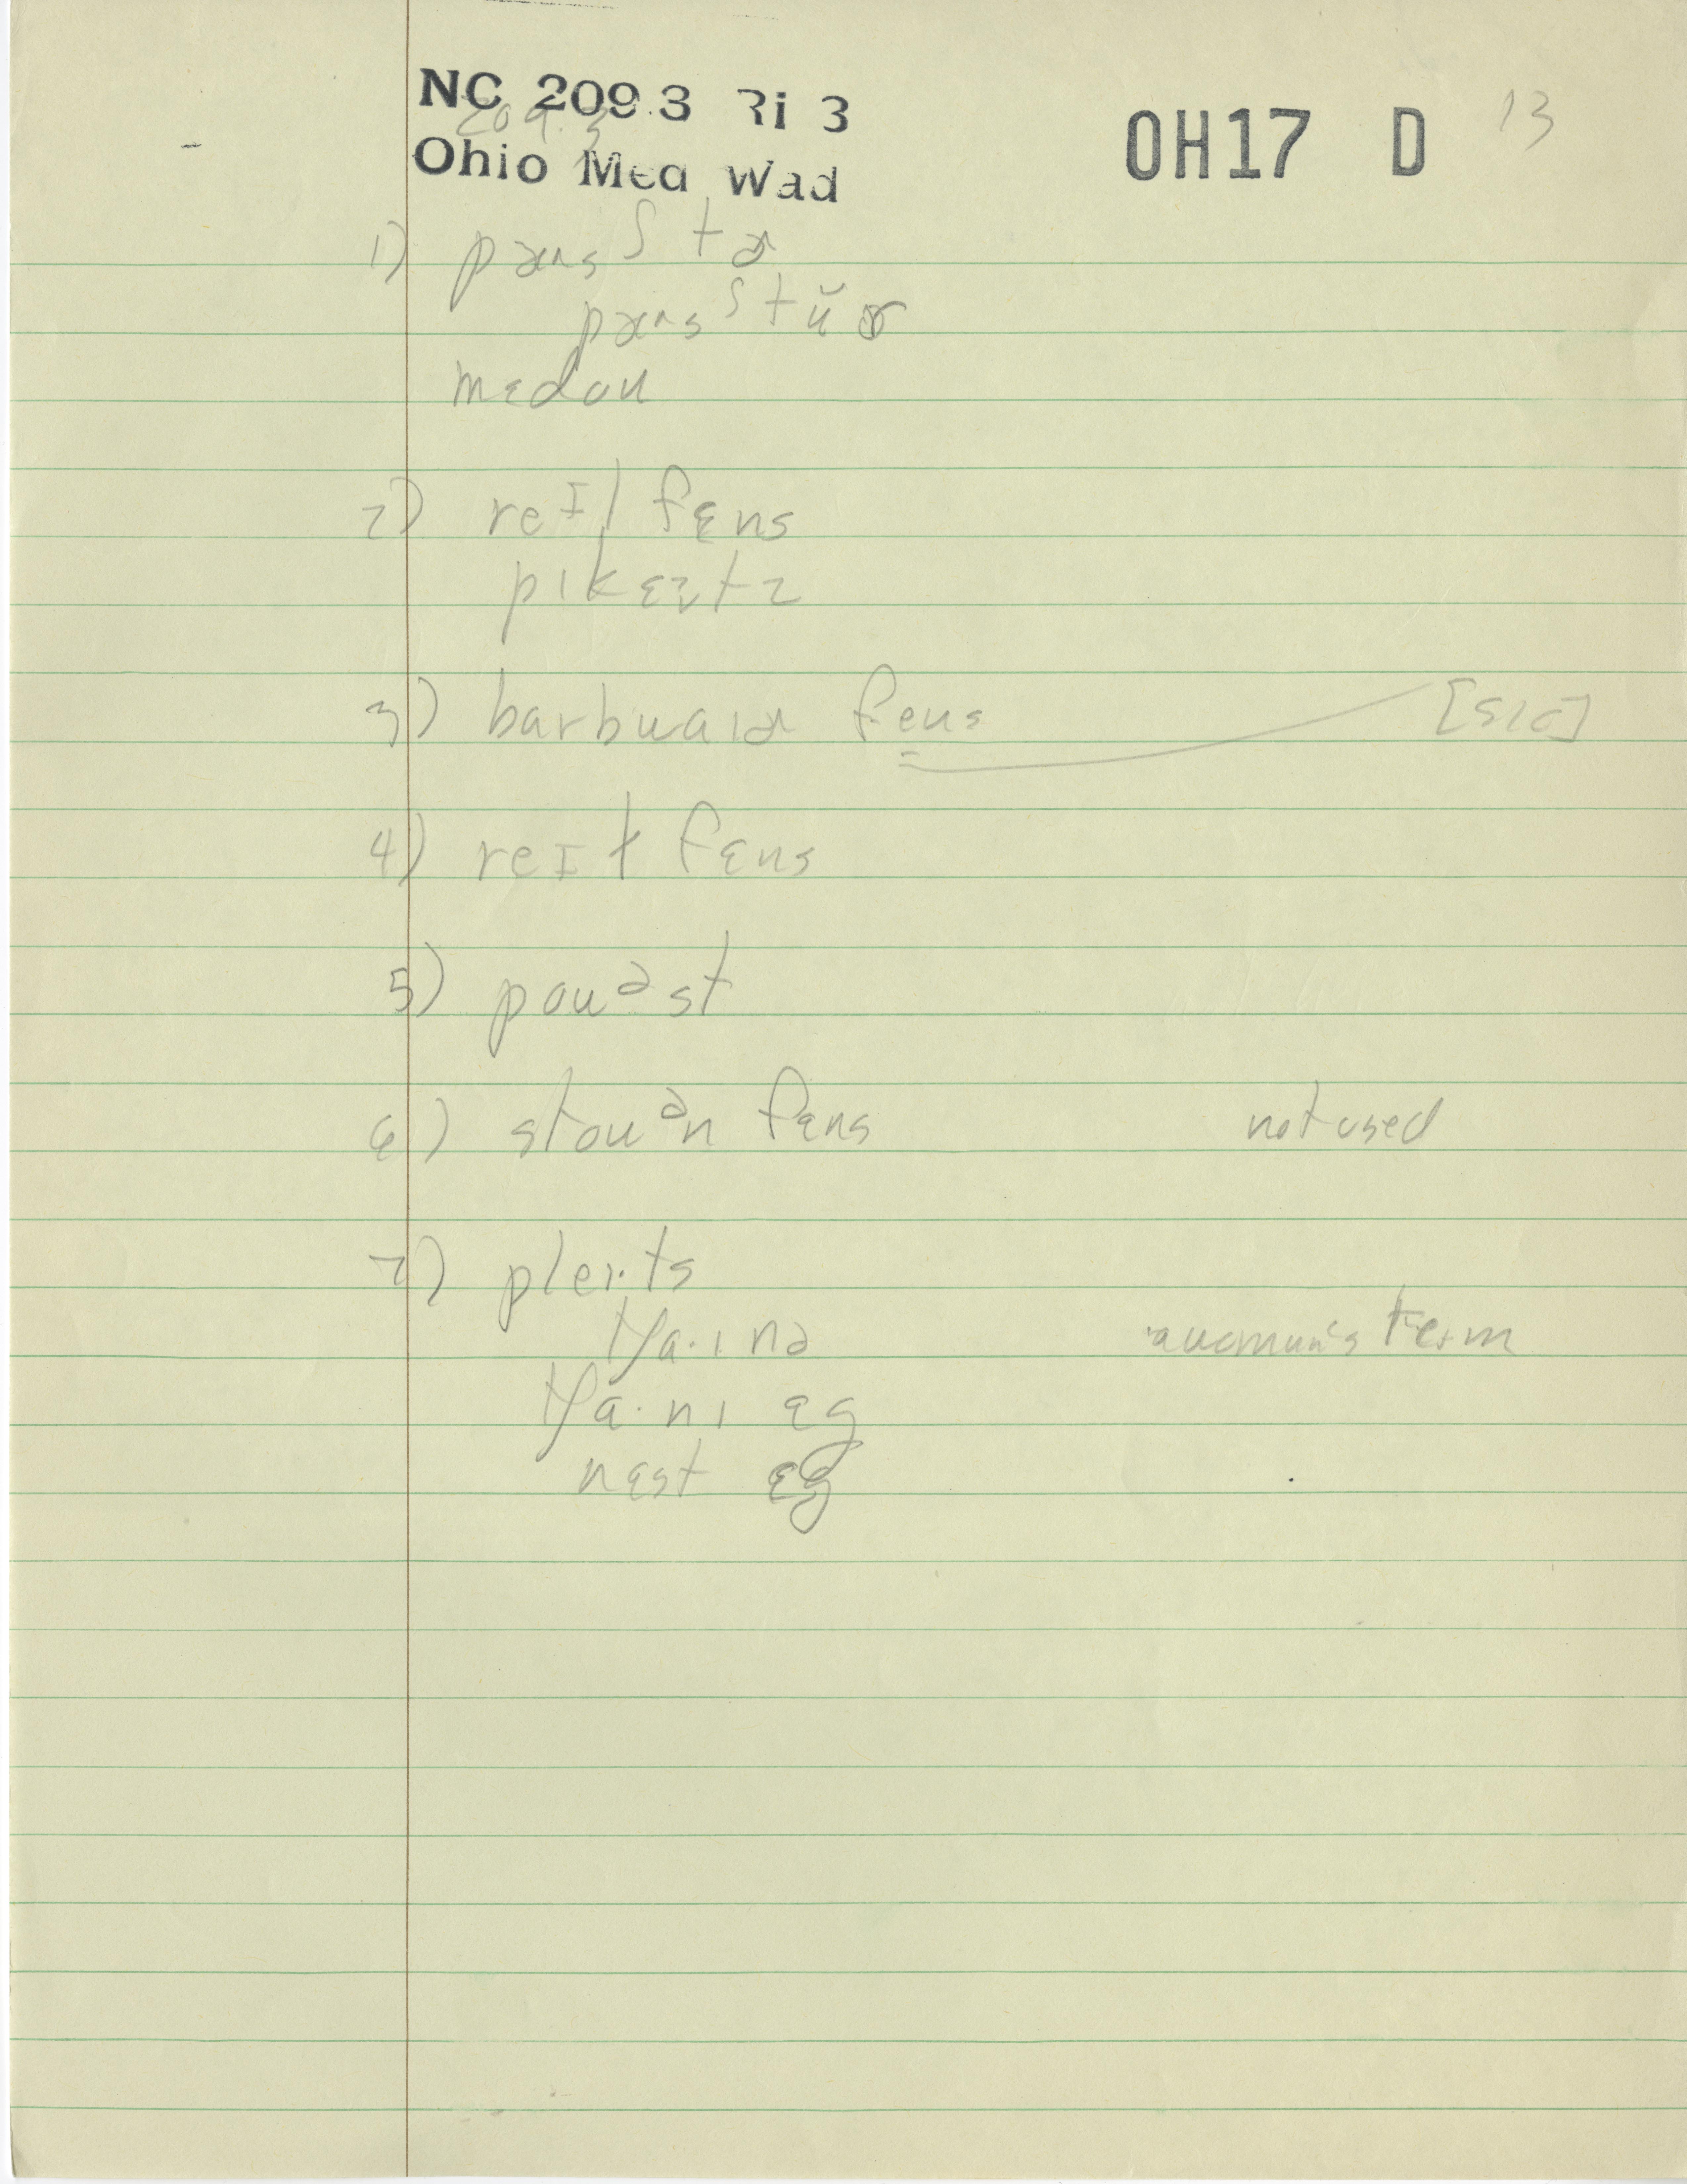 NC 209.3 Ri 3
209.3
Ohio Med Wad
OH17 D 13
1) pæsˢʃtɚ
pæsˢʃtŭɚ
mɛdou
2) reᴵl fɛns
pɪkɛts
3) barbwaɪɚ fens [sic]
4) reɪɫ fɛns
5) pouᵊst
6) stouᵊn fɛns not used
7) pleɪts
tʃa·ɪnə term
tʃa·nɪ ɛg
nɛst ɛg